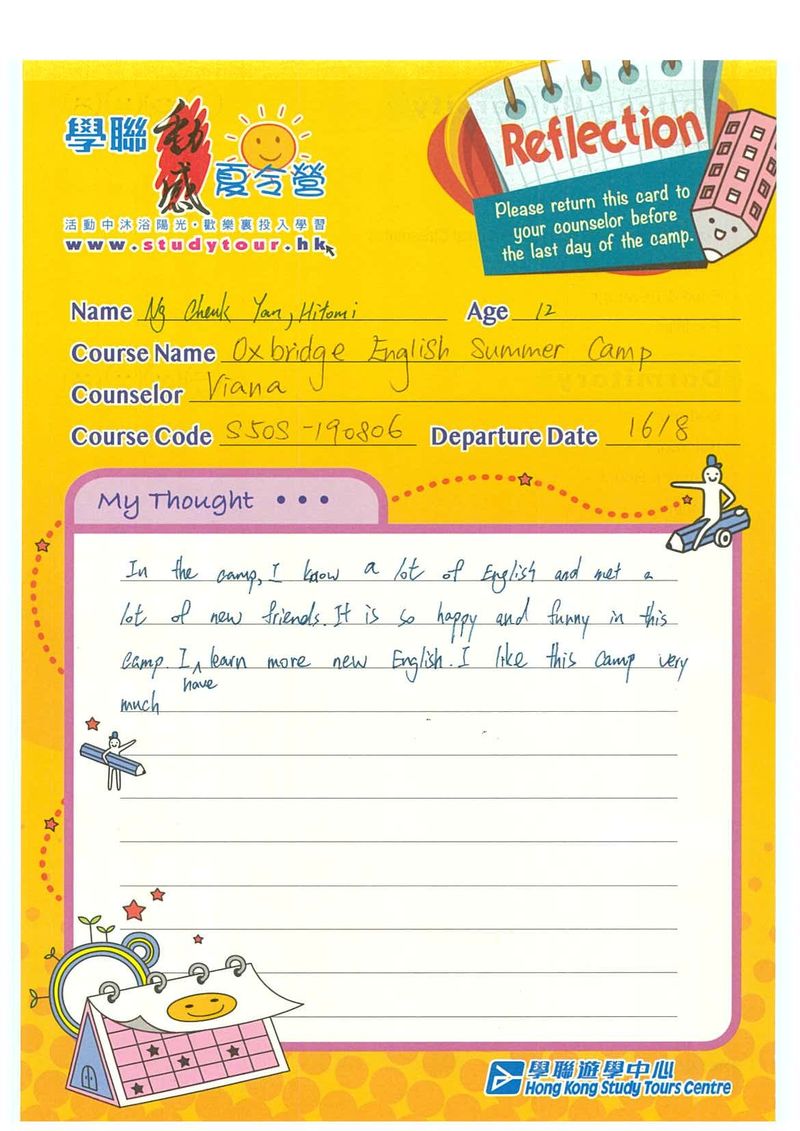 學聯 動感 夏令營
活動中沐浴陽光・歡樂裏投入學習
www.studytour.hk
Reflection
Please return this card to
your counselor before
the last day of the camp.
Name Ng Cheuk Yan, Hitomi Age 12
Course Name Oxbridge English Summer Camp
Counselor Viana
Course Code S50S-190806 Departure Date 16/8
My Thought • • •
In the camp, I know a lot of English and met a
lot of new friends. It is so happy and funny in this
camp. I ^ learn more new English. I like this camp very
have
much
學聯遊學中心
Hong Kong Study Tours Centre